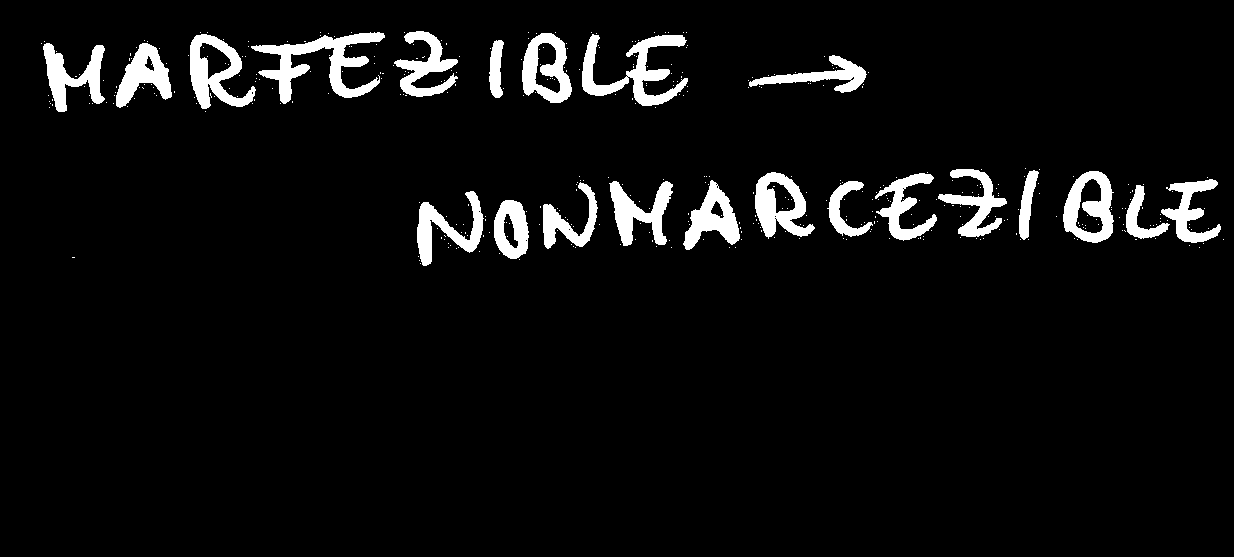 MARFEZIBLE →
NONMARCEZIBLE